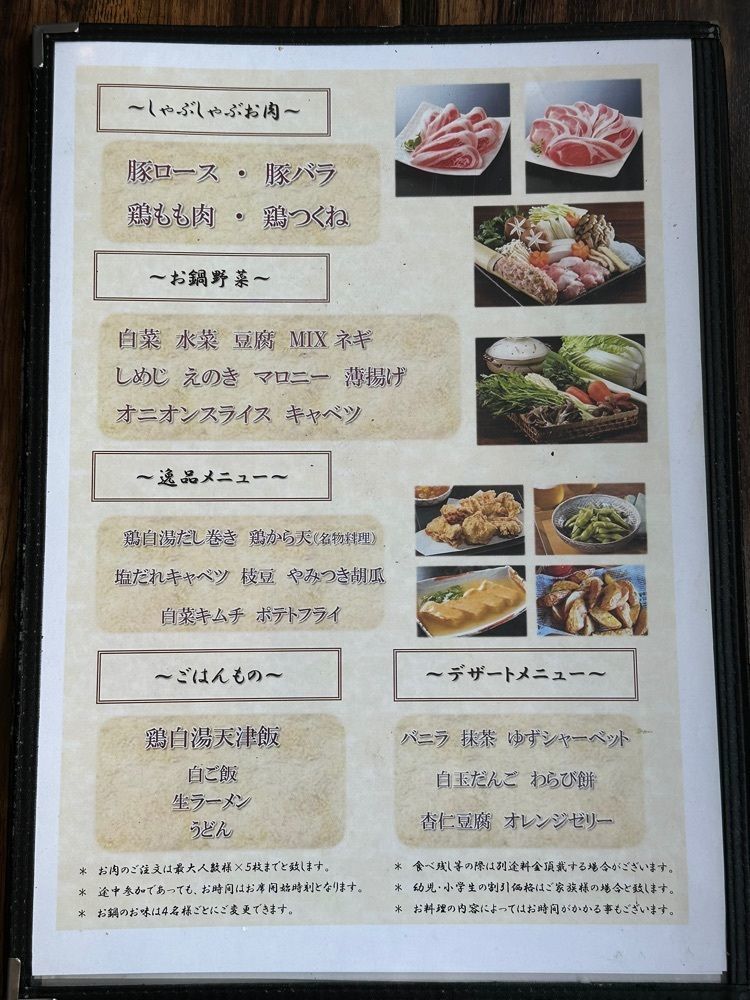 ～しゃぶしゃぶお肉～
豚ロース ・ 豚バラ
鶏もも肉 ・ 鶏つくね
～お鍋野菜～
白菜 水菜 豆腐 MIXネギ
しめじ えのき マロニー 薄揚げ
オニオンスライス キャベツ
～逸品メニュー～
鶏白湯だし巻き 鶏から天(名物料理)
塩だれキャベツ 枝豆 やみつき胡瓜
白菜キムチ ポテトフライ
～ごはんもの～
鶏白湯天津飯
白ご飯
生ラーメン
うどん
～デザートメニュー～
バニラ 抹茶 ゆずシャーベット
白玉だんご わらび餅
杏仁豆腐 オレンジゼリー
＊ お肉のご注文は最大人数様×5枚までと致します。
＊ 途中参加であっても、お時間はお席開始時刻となります。
＊ お鍋のお味は4名様ごとにご変更できます。
＊ 食べ残し等の際は別途料金頂戴する場合がございます。
＊ 幼児・小学生の割引価格はご家族様の場合と致します。
＊ お料理の内容によってはお時間がかかる事もございます。